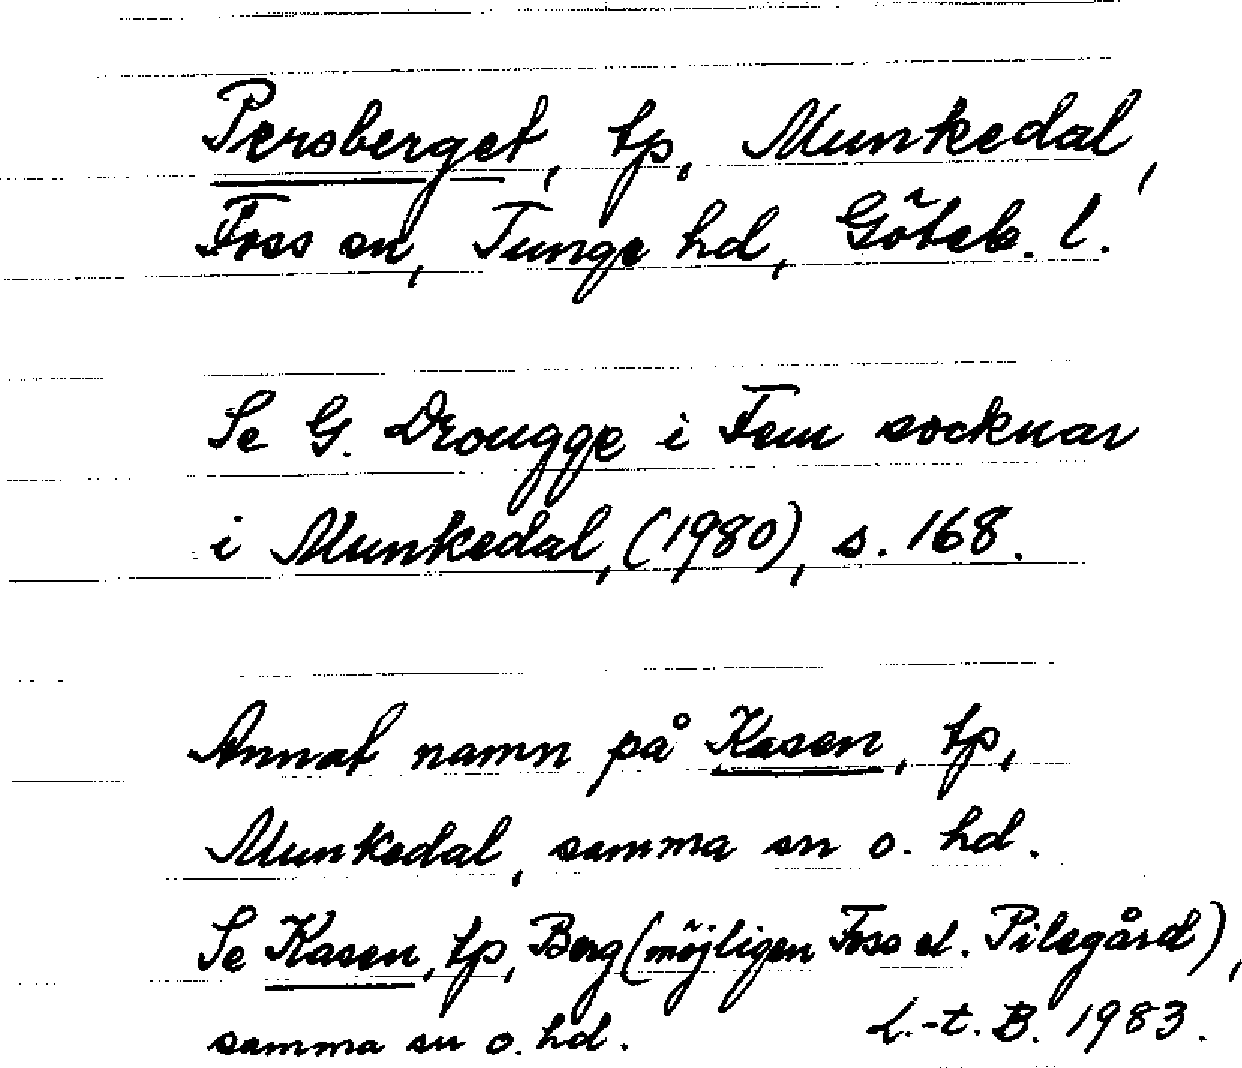 Persberget, tp, Munkedal,
Foss sn, Tunge hd, Göteb. l.
Se G. Drougge i Fem socknar
i Munkedal, (1980), s. 168.
Annat namn på Kasen, tp,
Munkedal, samma sn o. hd.
Se Kasen, tp, Berg (möjligen Foss el. Pilegård),
samma sn o. hd. L.-t. B. 1983.